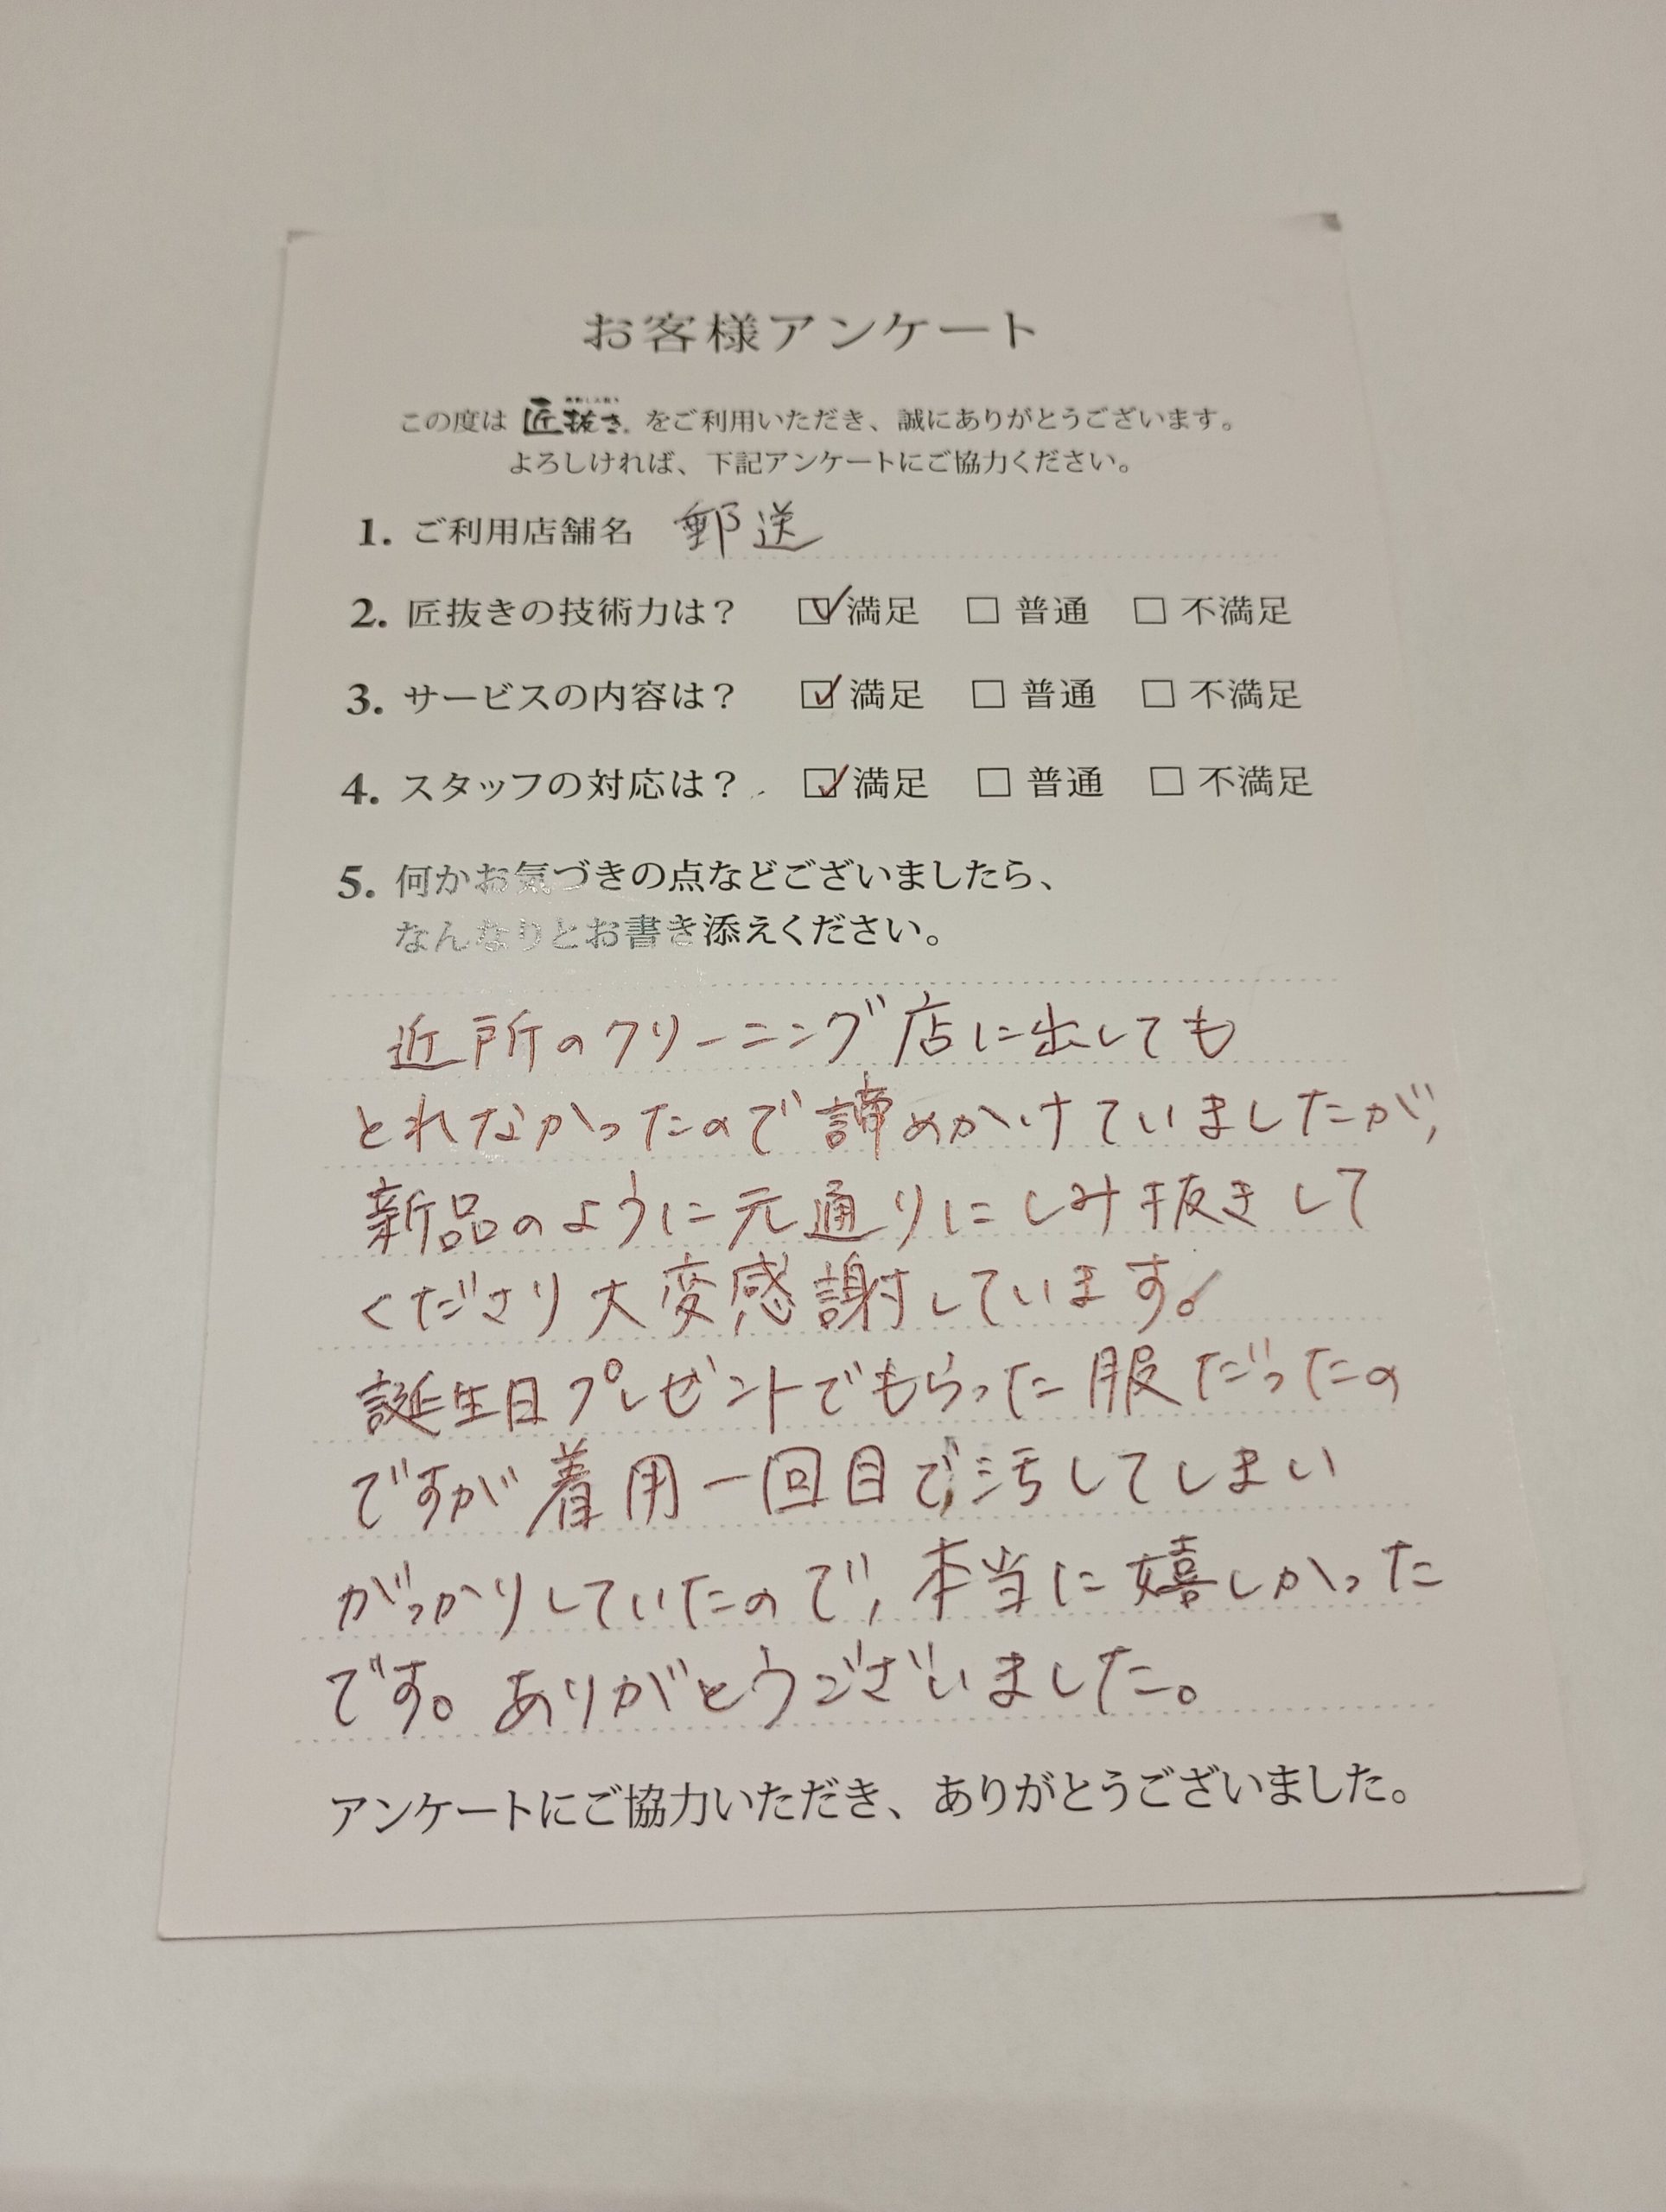 お客様アンケート
この度は 匠抜き をご利用いただき、誠にありがとうございます。
よろしければ、下記アンケートにご協力ください。
1. ご利用店舗名 郵送
2. 匠抜きの技術力は？ ☑ 満足 □ 普通 □ 不満足
3. サービスの内容は？ ☑ 満足 □ 普通 □ 不満足
4. スタッフの対応は？ ☑ 満足 □ 普通 □ 不満足
5. 何かお気づきの点などございましたら、
なんなりとお書き添えください。
近所のクリーニング店に出しても
とれなかったので諦めかけていましたが,
新品のように元通りにしみ抜きして
くださり大変感謝しています。
誕生日プレゼントでもらった服だったの
ですが着用一回目で汚してしまい
がっかりしていたので, 本当に嬉しかった
です。ありがとうございました。
アンケートにご協力いただき、ありがとうございました。